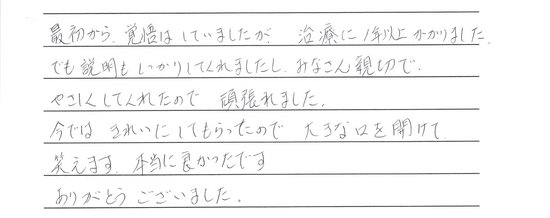 最初から、覚悟はしていましたが、治療に1年以上かかりました。
でも説明もしっかりしてくれましたし、みなさん親切で、
やさしくしてくれたので頑張れました。
今ではきれいにしてもらったので大きな口を開けて
笑えます。本当に良かったです
ありがとうございました。